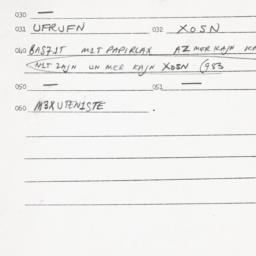 030 —
031 UFRUFN 032 XOSN
040 BAS71T M1T PAPIRLAX AZ MER KAJN
N1T ZAJN UN MER KAJN XOSN (983
050 — 051 —
060 M3XUTEN1STE .